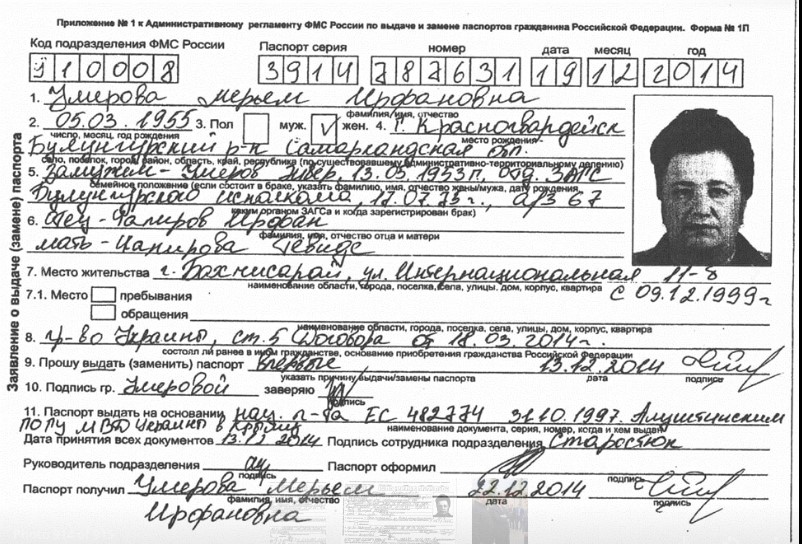 Приложение № 1 к Административному регламенту ФМС России по выдаче и замене паспортов гражданина Российской Федерации. Форма № 1П
Код подразделения ФМС России Паспорт серия номер дата месяц год
910008 3914 787631 19 12 2014
1. Умерова Мерьем Ирфановна
фамилия, имя, отчество
2. 05.03.1955 3. Пол муж. V жен. 4. г. Красногвардейск
число, месяц, год рождения место рождения
Булунгурский р-н Самаркандская обл.
село, поселок, город, район, область, край, республика (по существовавшему административно-территориальному делению)
5. Замужем - Умеров Энвер, 13.05.1953г. отд. ЗАГС
семейное положение (если состоит в браке, указать фамилию, имя, отчество жены/мужа, дату рождения,
Булунгурского исполкома, г., а/з 67
каким органом ЗАГСа и когда зарегистрирован брак)
6. отец - Ирфан
фамилия, имя, отчество отца и матери
мать -
7. Место жительства г. Бахчисарай, ул. Интернациональная 11-8
наименование области, города, поселка, села, улицы, дом, корпус, квартира
с 09.12.1999г
7.1. Место пребывания
обращения
наименование области, города, поселка, села, улицы, дом, корпус, квартира
8. гр-во Украины, ст. 5 Договора от 18.03.2014г.
состоял ли ранее в ином гражданстве, основание приобретения гражданства Российской Федерации
9. Прошу выдать (заменить) паспорт впервые 13.12.2014
указать причину выдачи/замены паспорта дата подпись
10. Подпись гр. Умеровой заверяю
подпись
11. Паспорт выдать на основании нац. п-та ЕС 482774 31.10.1997. Алуштинским
наименование документа, серия, номер, когда и кем выдан
МВД Украины в Крыму
Дата принятия всех документов 2014 Подпись сотрудника подразделения Старостюк
Руководитель подразделения Паспорт оформил
подпись подпись
Паспорт получил Умерова Мерьем 22.12.2014
фамилия, имя, отчество дата подпись
Ирфановна
Заявление о выдаче (замене) паспорта